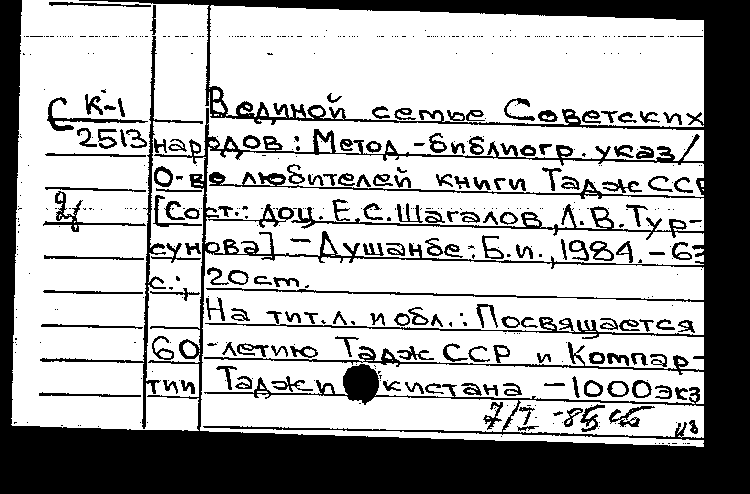 С К-1 В единой семье Советских
2513 народов: Метод.-библиогр. указ/
О-во любителей книги Тадж ССР
[Сост.: доц. Е.С.Шагалов, Л.В.Тур-
сунова] - Душанбе: Б.и., 1984. - 63
с.; 20 см.
На тит.л. и обл.: Посвящается
60-летию Тадж ССР и Компар-
тии Таджи кистана. - 1000 экз
7/I -85